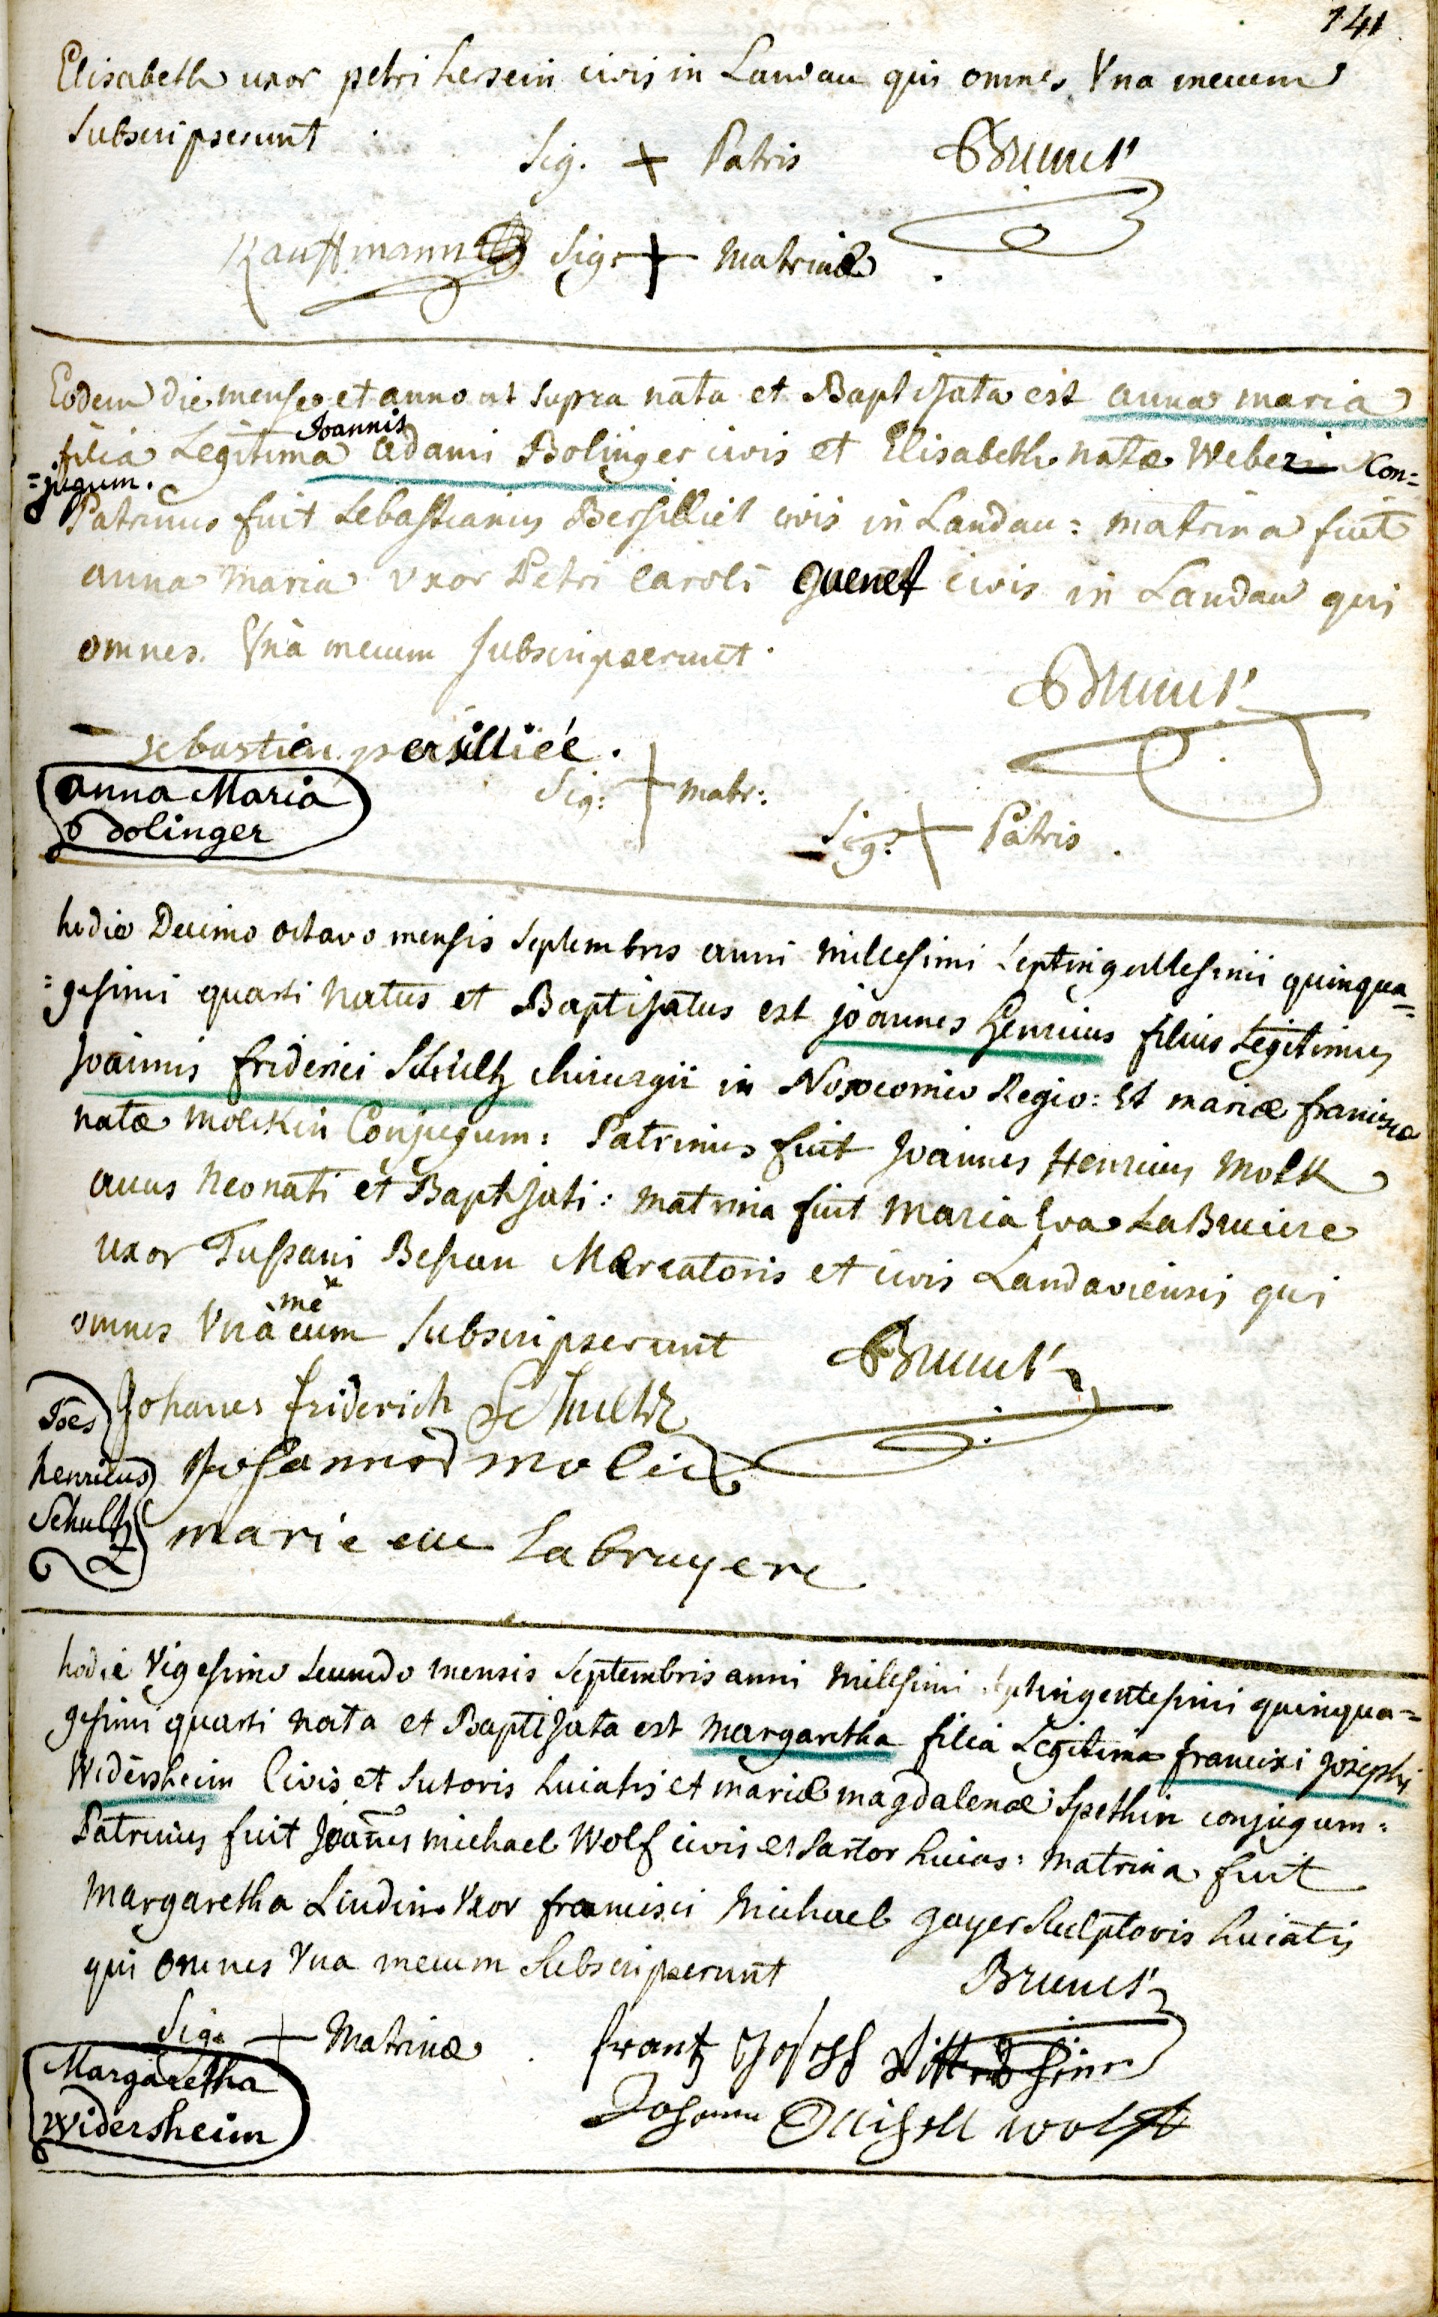 141
Elisabeth uxor petri hersein civis in Landau qui omnes Vna mecum
Subscripserunt
Sig. + Patris Brunet
Kauffmann Sig: + Matrinæ
Eodem die mense et anno ut supra nata et Baptisata est anna maria
filia Legitima Joannis Adami Bolinger civis et Elisabeth natæ Weber Con=
=jugum.
Patrinus fuit Sebastianus Bersilliet civis in Landau: matrina fuit
anna maria Vxor Petri Caroli Quenet civis in Landau qui
omnes Vnà mecum subscripserunt.
Brunet
sebastien persilliéé.
Sig: + matr:
Sig: + Patris.
anna Maria
Bolinger
hodie Decimo octavo mensis Septembris anni millesimi Septingentesimi quinqua=
=gesimi quarti natus et Baptisatus est joannes Henricus filius Legitimus
Joannis friderici Schultz chirurgii in Nosocomio Regio: Et mariæ franciscæ
natæ Molckin Conjugum: Patrinus fuit Joannes Henricus Molk
avus Neonati et Baptisati: matrina fuit Maria Eva LaBruiere
uxor Tussani Bessan Mercatoris et civis Landaviensis qui
omnes Vnà me cum Subscripserunt Brunet
Johanes friderich Schultz
Johannes molck
marie eve Labruyere
Joes
henricus
Schultz
hodie Vigesimo Secundo mensis Septembris anni Millesimi Septingentesimi quinqua=
gesimi quarti nata et Baptisata est Margaretha filia Legitima francisci Josephi
Widersheim Civis et Sutoris huiatis et mariæ magdalenæ Spethin conjugum:
Patrinus fuit Joānes michael Wolf civis et Sartor huias: matrina fuit
Margaretha Lindin Vxor francisci Michael gayer Sculptoris huiatis
qui omnes Vna mecum Subscripserunt
Brunet
Sig. + Matrinæ. frantz Joseph
Johann Michell wolff
Margaretha
Widersheim